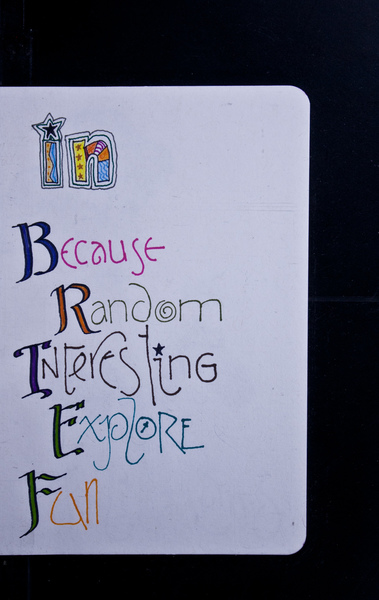 in
Because
Random
Interesting
Explore
Fun